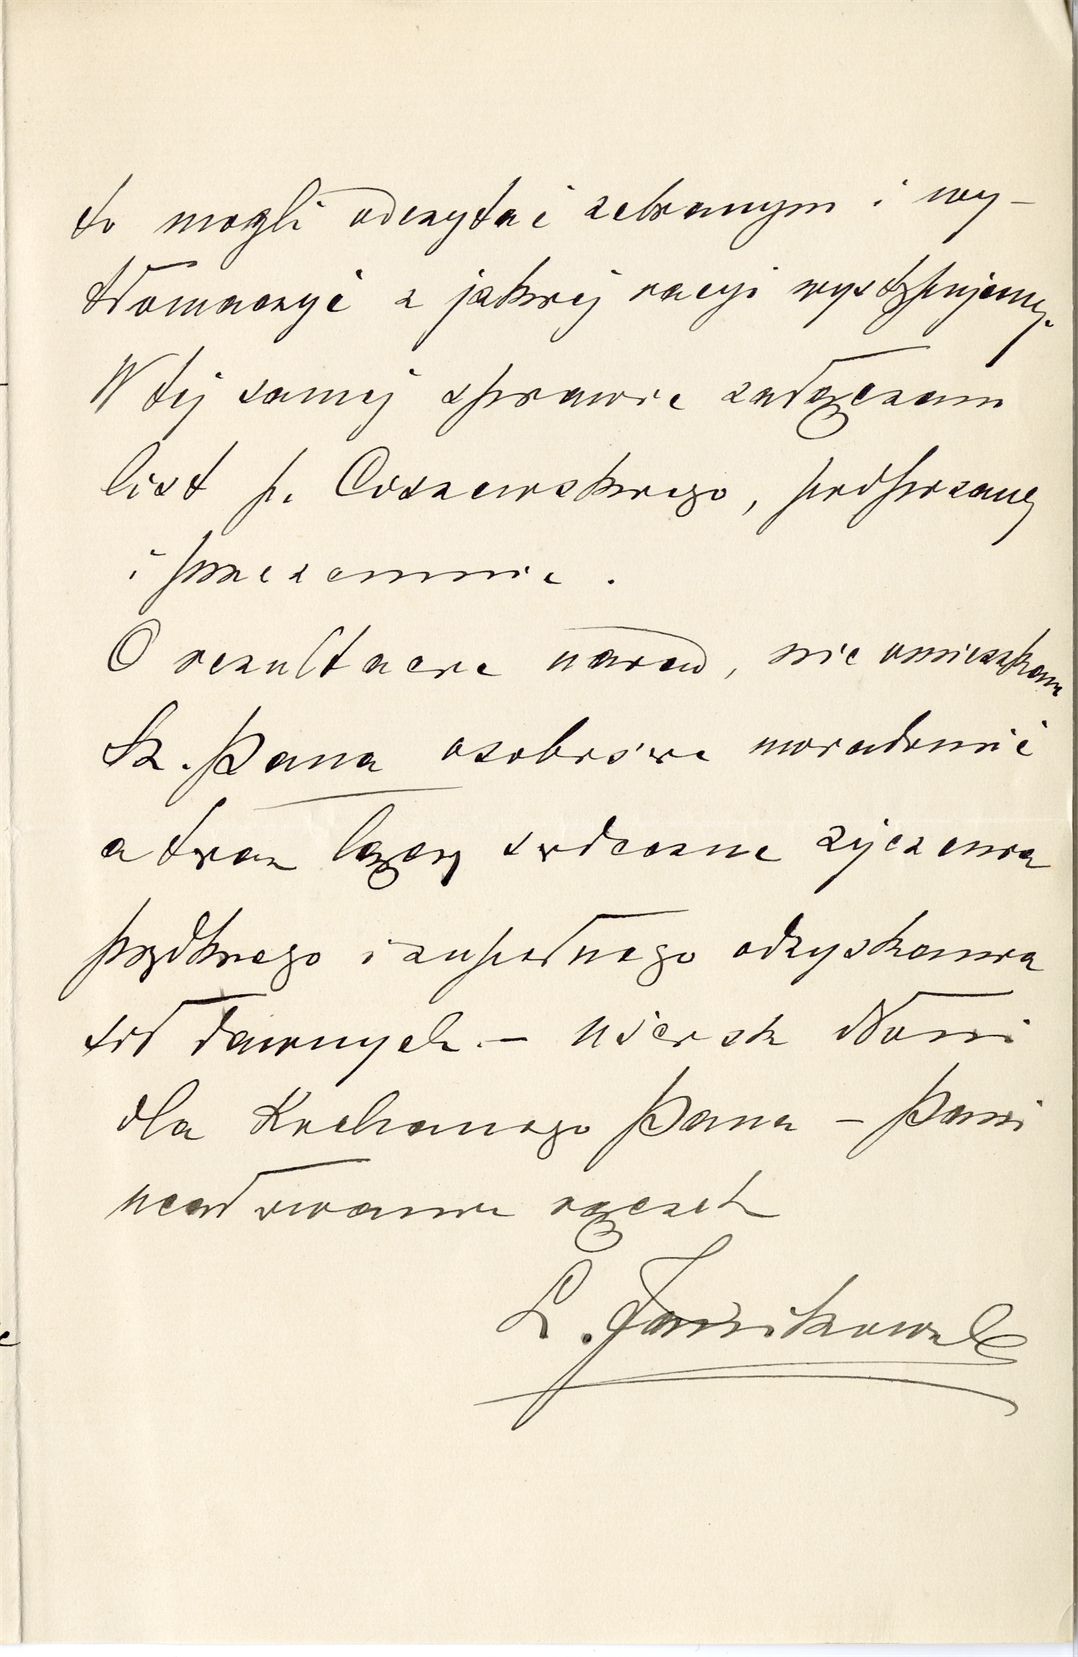 to mogli odczytać zebranym i wy-
tłomaczyć z jakiej racyi występujemy.
W tej samej sprawie załączam
list p. Ciszewskiego, podpisany
i przezemnie.
O rezultacie narad, nie omieszkam
Sz. Pana osobiście powiadomić
a teraz łączę serdeczne życzenia
prędkiego i zupełnego odzyskania
sił dawnych. – Uścisk dłoni
dla Kochanego Pana – Pani
ucałowanie rączek
L. Janikowski